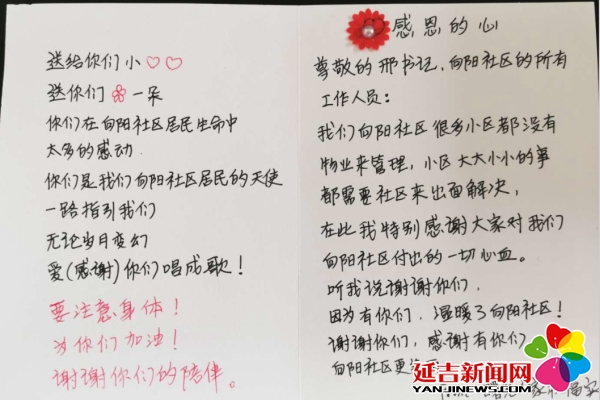 送给你们小♡♡
送你们一朵
你们在向阳社区居民生命中
太多的感动
你们是我们向阳社区居民的天使
一路指引我们
无论岁月变幻
爱(感谢)你们唱成歌!
要注意身体!
为你们加油!
谢谢你们的陪伴。
感恩的心
尊敬的邢书记,向阳社区的所有
工作人员:
我们向阳社区很多小区都没有
物业来管理,小区大大小小的事
都需要社区来出面解决,
在此我特别感谢大家对我们
向阳社区付出的一切心血。
听我说谢谢你们,
因为有你们,温暖了向阳社区!
谢谢你们,感谢有你们
向阳社区更
延吉新闻网
YANJINEWS.COM